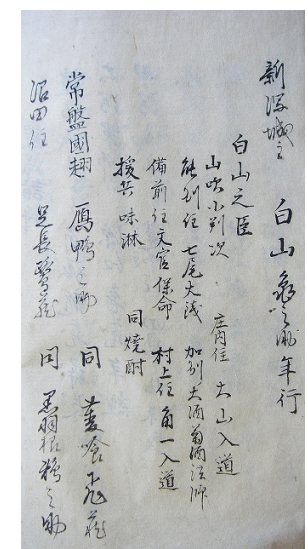 新潟城主 白山亀之助年行
白山之臣
山吹小判次 庄内住 大山入道
能州住 七尾大浅 加州 大酒菊酒法師
備前住 文官保命 村上住 角一入道
援兵 味淋 同 焼酎
常盤國翅 鳫鴨之助 同 菱喰下蔵
沼田住 足長鷺蔵 同 黒羽根鴉之助